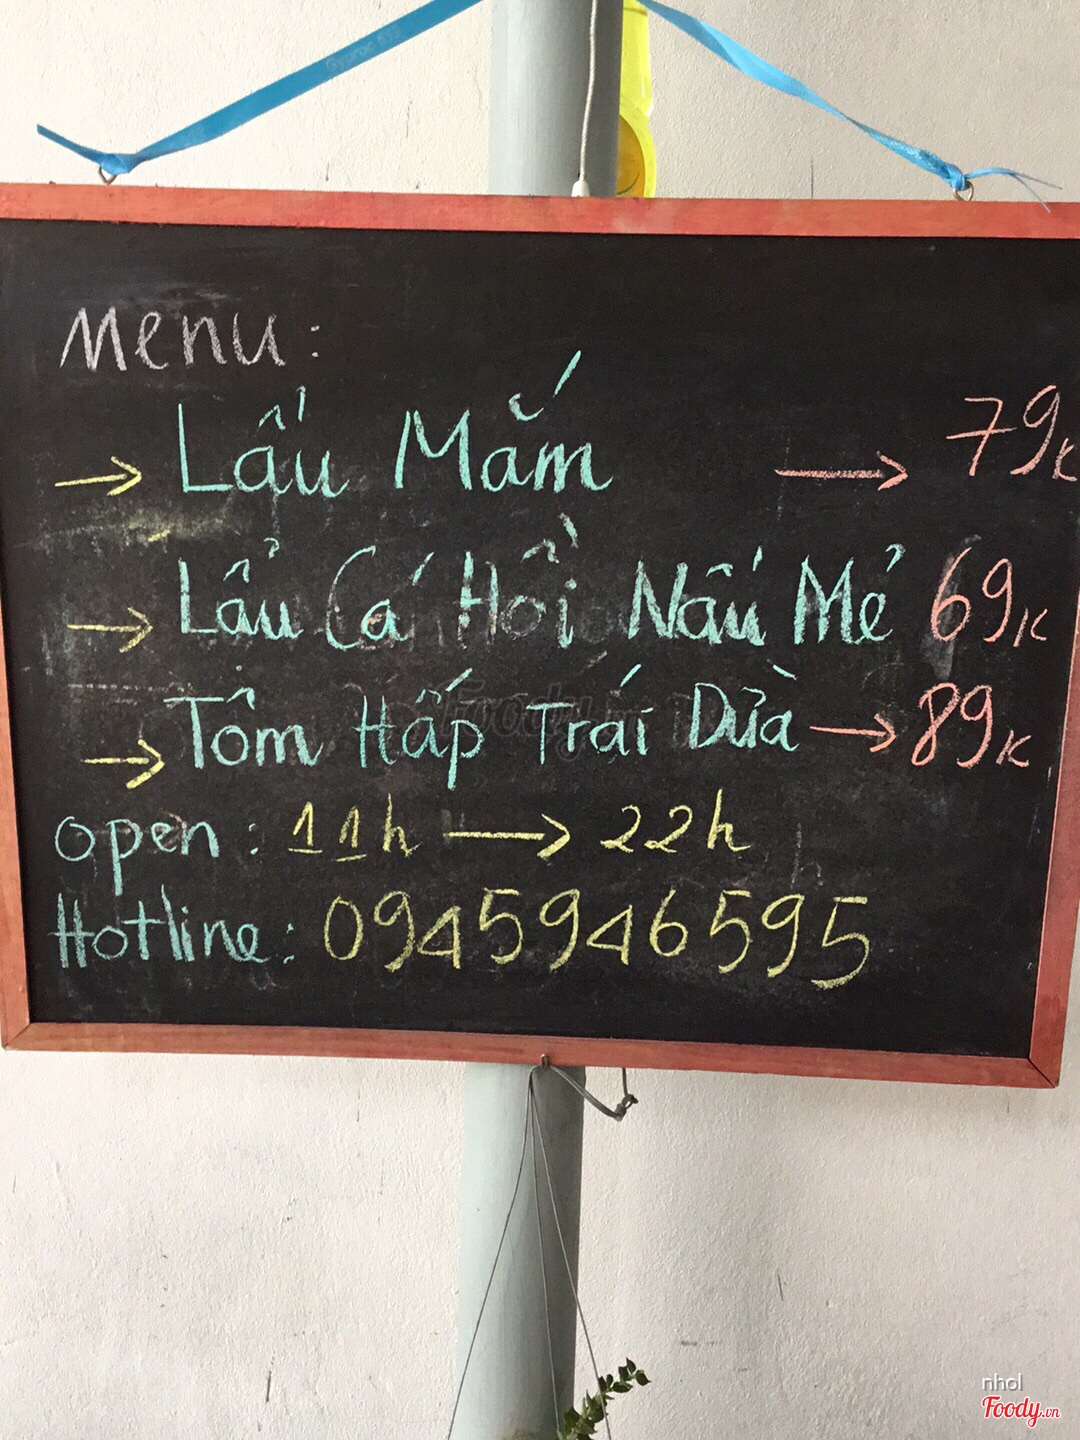 Menu:
→ Lẩu Mắm → 79k
→ Lẩu Cá Hồi Nấu Mẻ 69k
→ Tôm Hấp Trái Dừa → 89k
open: 11h → 22h
Hotline: 0945946595
Foody.vn
nhol
Foody.vn